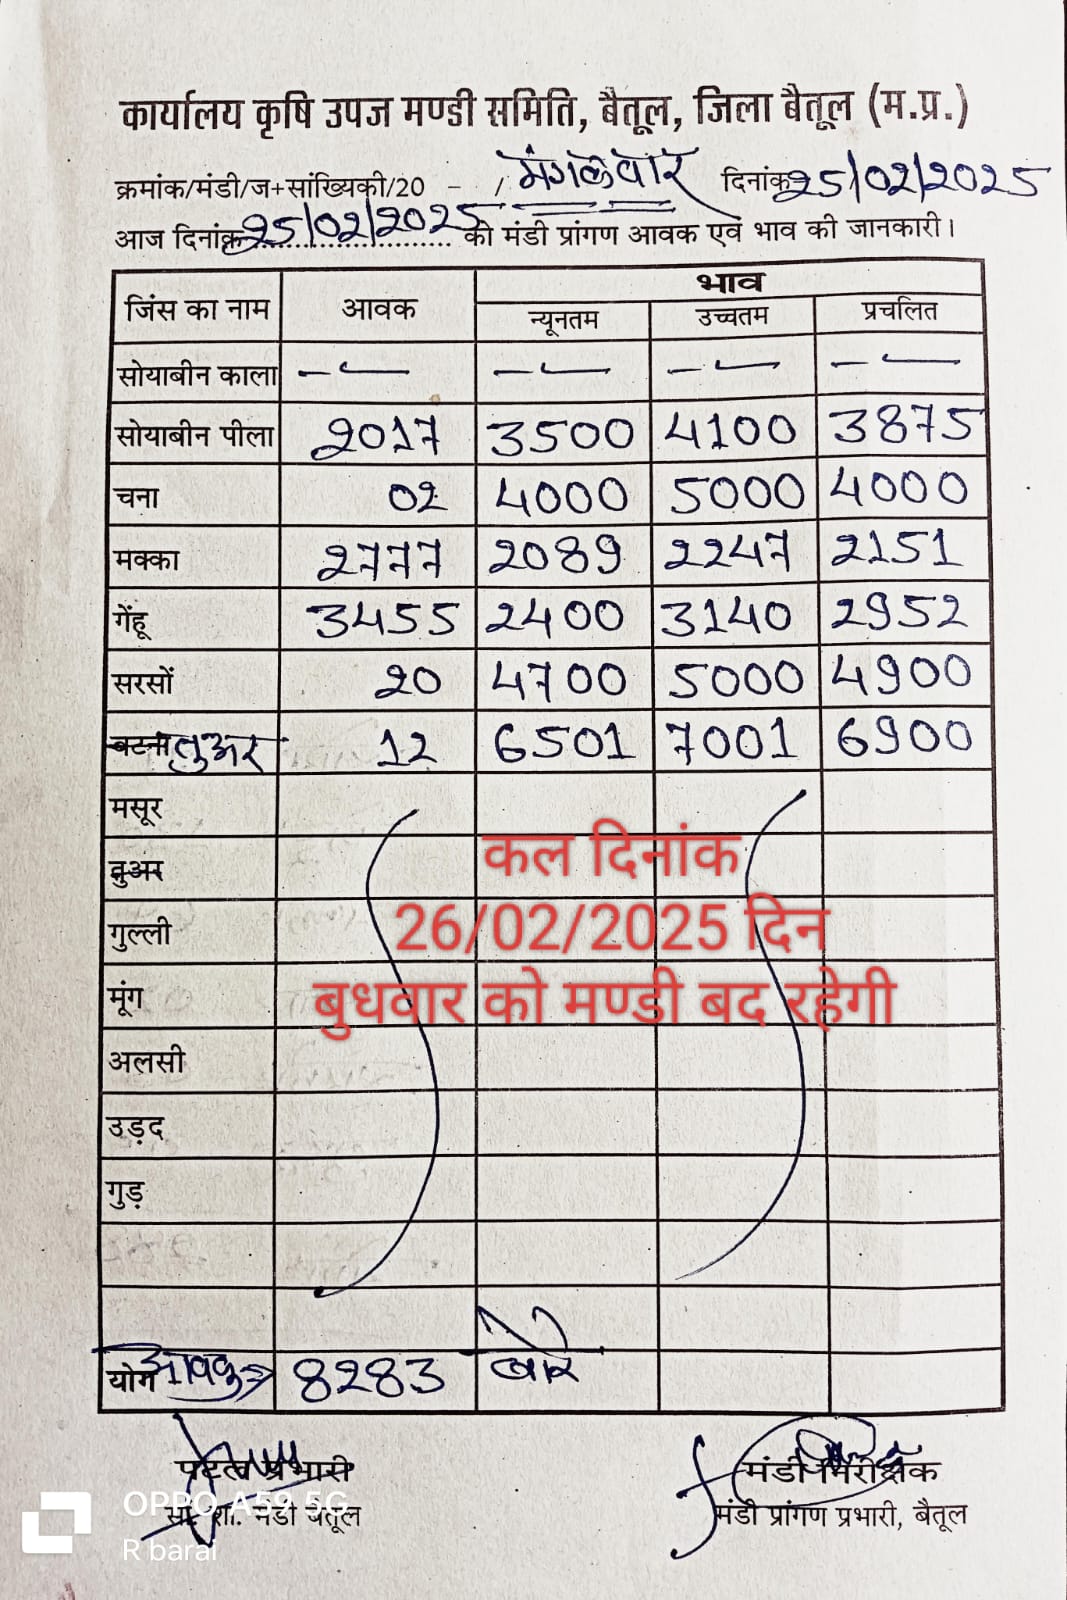 कार्यालय कृषि उपज मण्डी समिति, बैतूल, जिला बैतूल (म.प्र.)
क्रमांक/मंडी/ज+सांख्यिकी/20 - / मंगलवार दिनांक 25/02/2025
आज दिनांक 25/02/2025 को मंडी प्रांगण आवक एवं भाव की जानकारी।
जिंस का नाम आवक भाव
न्यूनतम उच्चतम प्रचलित
सोयाबीन काला - - - - - - - -
सोयाबीन पीला 2017 3500 4100 3875
चना 02 4000 5000 4000
मक्का 2777 2089 2247 2151
गेंहू 3455 2400 3140 2952
सरसों 20 4700 5000 4900
बटना तुअर 12 6501 7001 6900
मसूर
तुअर
गुल्ली
मूंग
अलसी
उड़द
गुड़
कल दिनांक
26/02/2025 दिन
बुधवार को मण्डी बद रहेगी
योग आवक 8283 बोरे
प्रभारी मंडी निरीक्षक
मंडी बैतूल मंडी प्रांगण प्रभारी, बैतूल
OPPO A59 5G
R barai